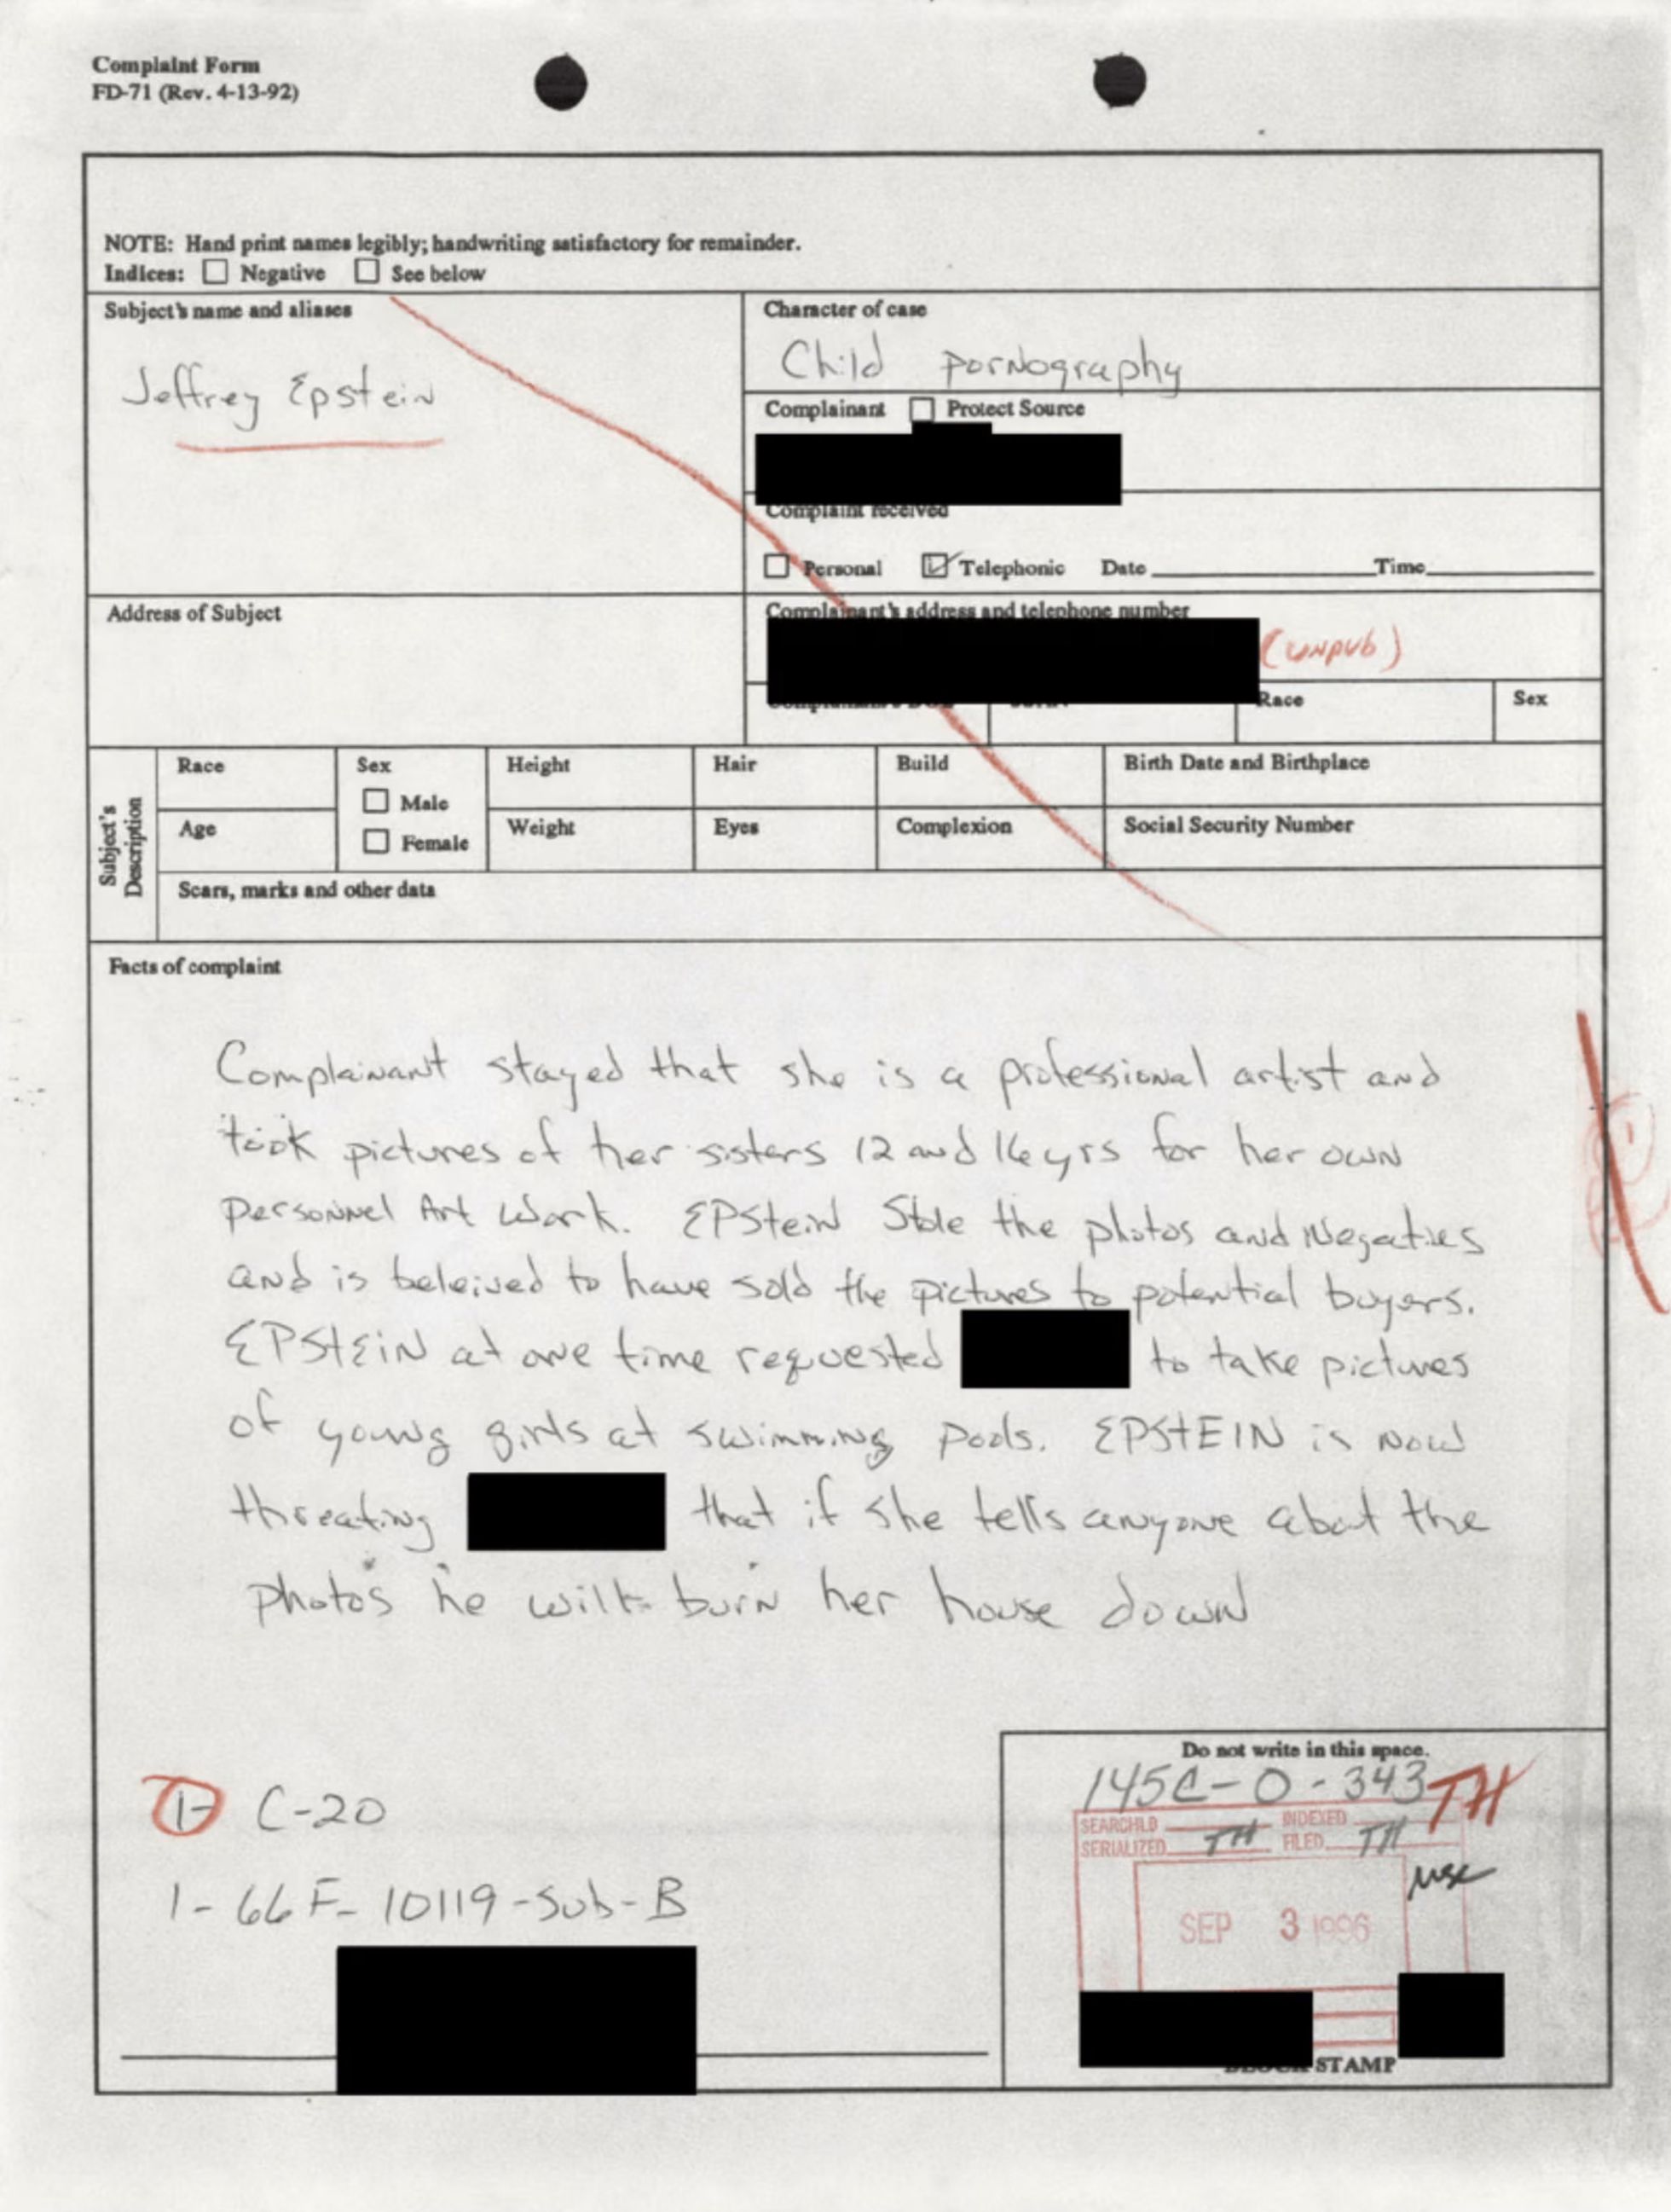 Complaint Form
FD-71 (Rev. 4-13-92)
NOTE: Hand print names legibly; handwriting satisfactory for remainder.
Indices: Negative See below
Subject's name and aliases
Jeffrey Epstein
Character of case
Child pornography
Complainant Protect Source
Complaint received
Personal Telephonic Date Time
Address of Subject
Complainant's address and telephone number
(unpub)
Race Sex
Subject's
Description
Race
Sex
Male
Female
Height
Hair
Build
Birth Date and Birthplace
Age
Weight
Eyes
Complexion
Social Security Number
Scars, marks and other data
Facts of complaint
Complainant stayed that she is a professional artist and
took pictures of her sisters 12 and 16 yrs for her own
personnel Art Work. EPStein Stole the photos and Negaties
and is beleived to have sold the pictures to potential buyers.
EPSTEIN at one time requested to take pictures
of young girls at swimming pools. EPSTEIN is now
threating that if she tells anyone about the
photos he will burn her house down
1- C-20
1- 66F- 10119-Sub-B
Do not write in this space.
145C-0-343 TH
SEARCHED INDEXED
SERIALIZED TH FILED TH
SEP 3 1996
STAMP